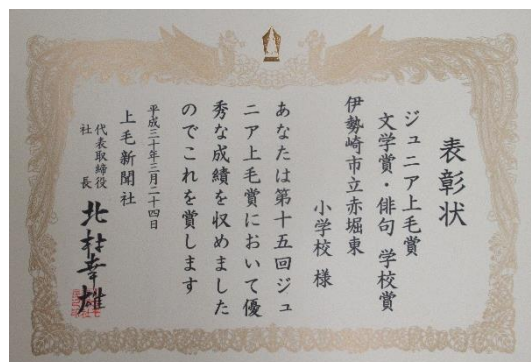 表彰状
ジュニア上毛賞
文学賞・俳句 学校賞
伊勢崎市立赤堀東
小学校 様
あなたは第十五回ジュ
ニア上毛賞において優
秀な成績を収めました
のでこれを賞します
平成三十年三月二十四日
上毛新聞社
代表取締役
社長 北村幸雄